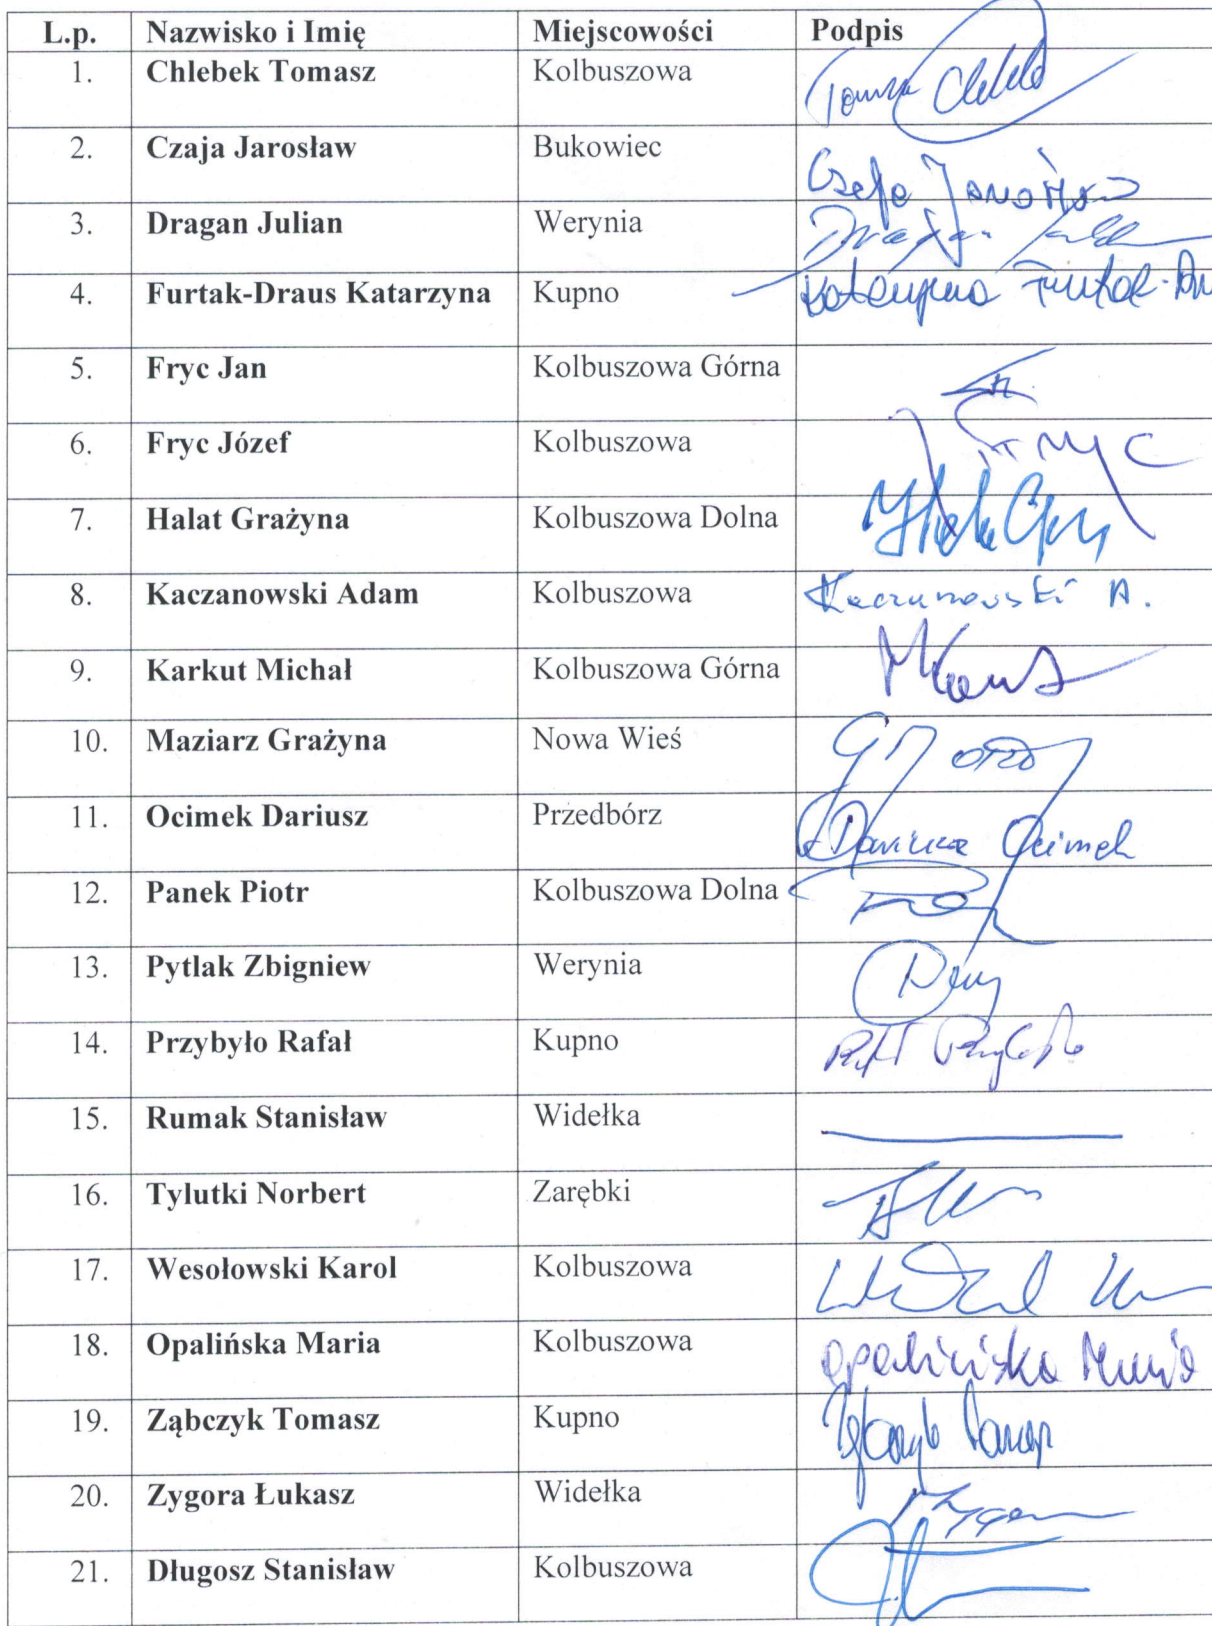 L.p. Nazwisko i Imię Miejscowości Podpis
1. Chlebek Tomasz Kolbuszowa
2. Czaja Jarosław Bukowiec Czaja Jarosław
3. Dragan Julian Werynia Dragan
4. Furtak-Draus Katarzyna Kupno Katarzyna Furtak-Dr
5. Fryc Jan Kolbuszowa Górna
6. Fryc Józef Kolbuszowa Fryc
7. Halat Grażyna Kolbuszowa Dolna
8. Kaczanowski Adam Kolbuszowa Kaczanowski A.
9. Karkut Michał Kolbuszowa Górna
10. Maziarz Grażyna Nowa Wieś
11. Ocimek Dariusz Przedbórz Dariusz Ocimek
12. Panek Piotr Kolbuszowa Dolna
13. Pytlak Zbigniew Werynia
14. Przybyło Rafał Kupno
15. Rumak Stanisław Widełka
16. Tylutki Norbert Zarębki
17. Wesołowski Karol Kolbuszowa
18. Opalińska Maria Kolbuszowa Opalińska Maria
19. Ząbczyk Tomasz Kupno
20. Zygora Łukasz Widełka
21. Długosz Stanisław Kolbuszowa